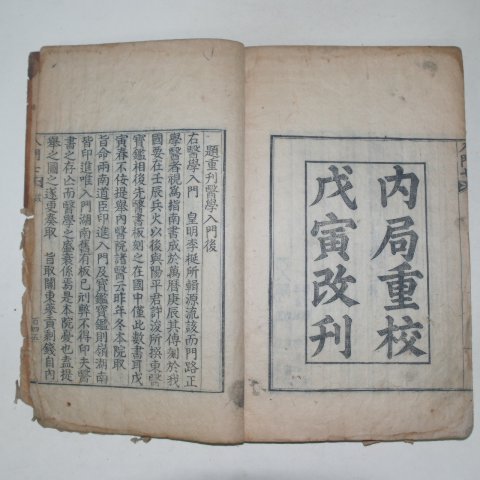 內局重校
戊寅改刊
題重刊醫學入門後
右醫學入門 皇明李梴所輯源流該而門路正
學醫者視爲指南書成於萬曆庚辰其傳刻於我
國要在壬辰兵火以後與陽平君許浚所撰東醫
寶鑑相後先醫書板刻之在國中僅此數書耳戊
寅春不侫提擧內醫院諸醫云昨年冬本院取
旨命兩南道臣印進入門及寶鑑寶鑑則嶺湖南
皆印進唯入門湖南舊有板已刓弊不得印夫醫
書之存亡而醫學之盛衰係焉是本院憂也盍提
擧之圖之遂更奏取 旨取關東蔘貢剩錢自內